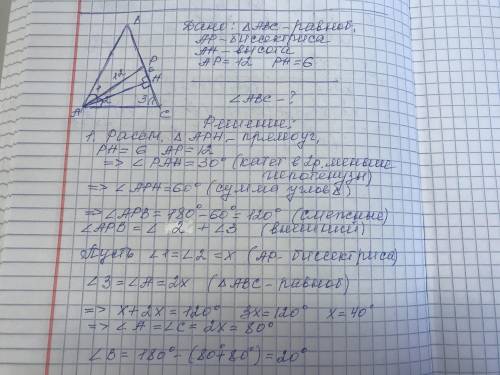 B
P
12
6
H
1
2
3
A
C
Дано: △ABC - равноб,
AP - биссектриса
AH - высота
AP = 12 PH = 6
∠ABC - ?
Решение:
1. Рассм. △APH - прямоуг,
PH = 6 AP = 12
=> ∠PAH = 30° (катет в 2р. меньше
гипотенузы)
=> ∠APH = 60° (сумма углов △)
=> ∠APB = 180° - 60° = 120° (смежные)
∠APB = ∠2 + ∠3 (внешний)
Пусть ∠1 = ∠2 = x (AP - биссектриса)
∠3 = ∠A = 2x (△ABC - равноб)
=> x + 2x = 120° 3x = 120° x = 40°
=> ∠A = ∠C = 2x = 80°
∠B = 180° - (80° + 80°) = 20°